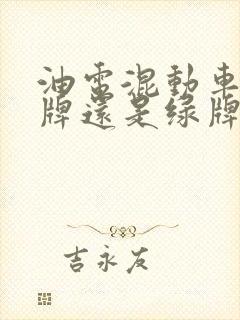 油電混動車
牌還是綠牌
吉永友